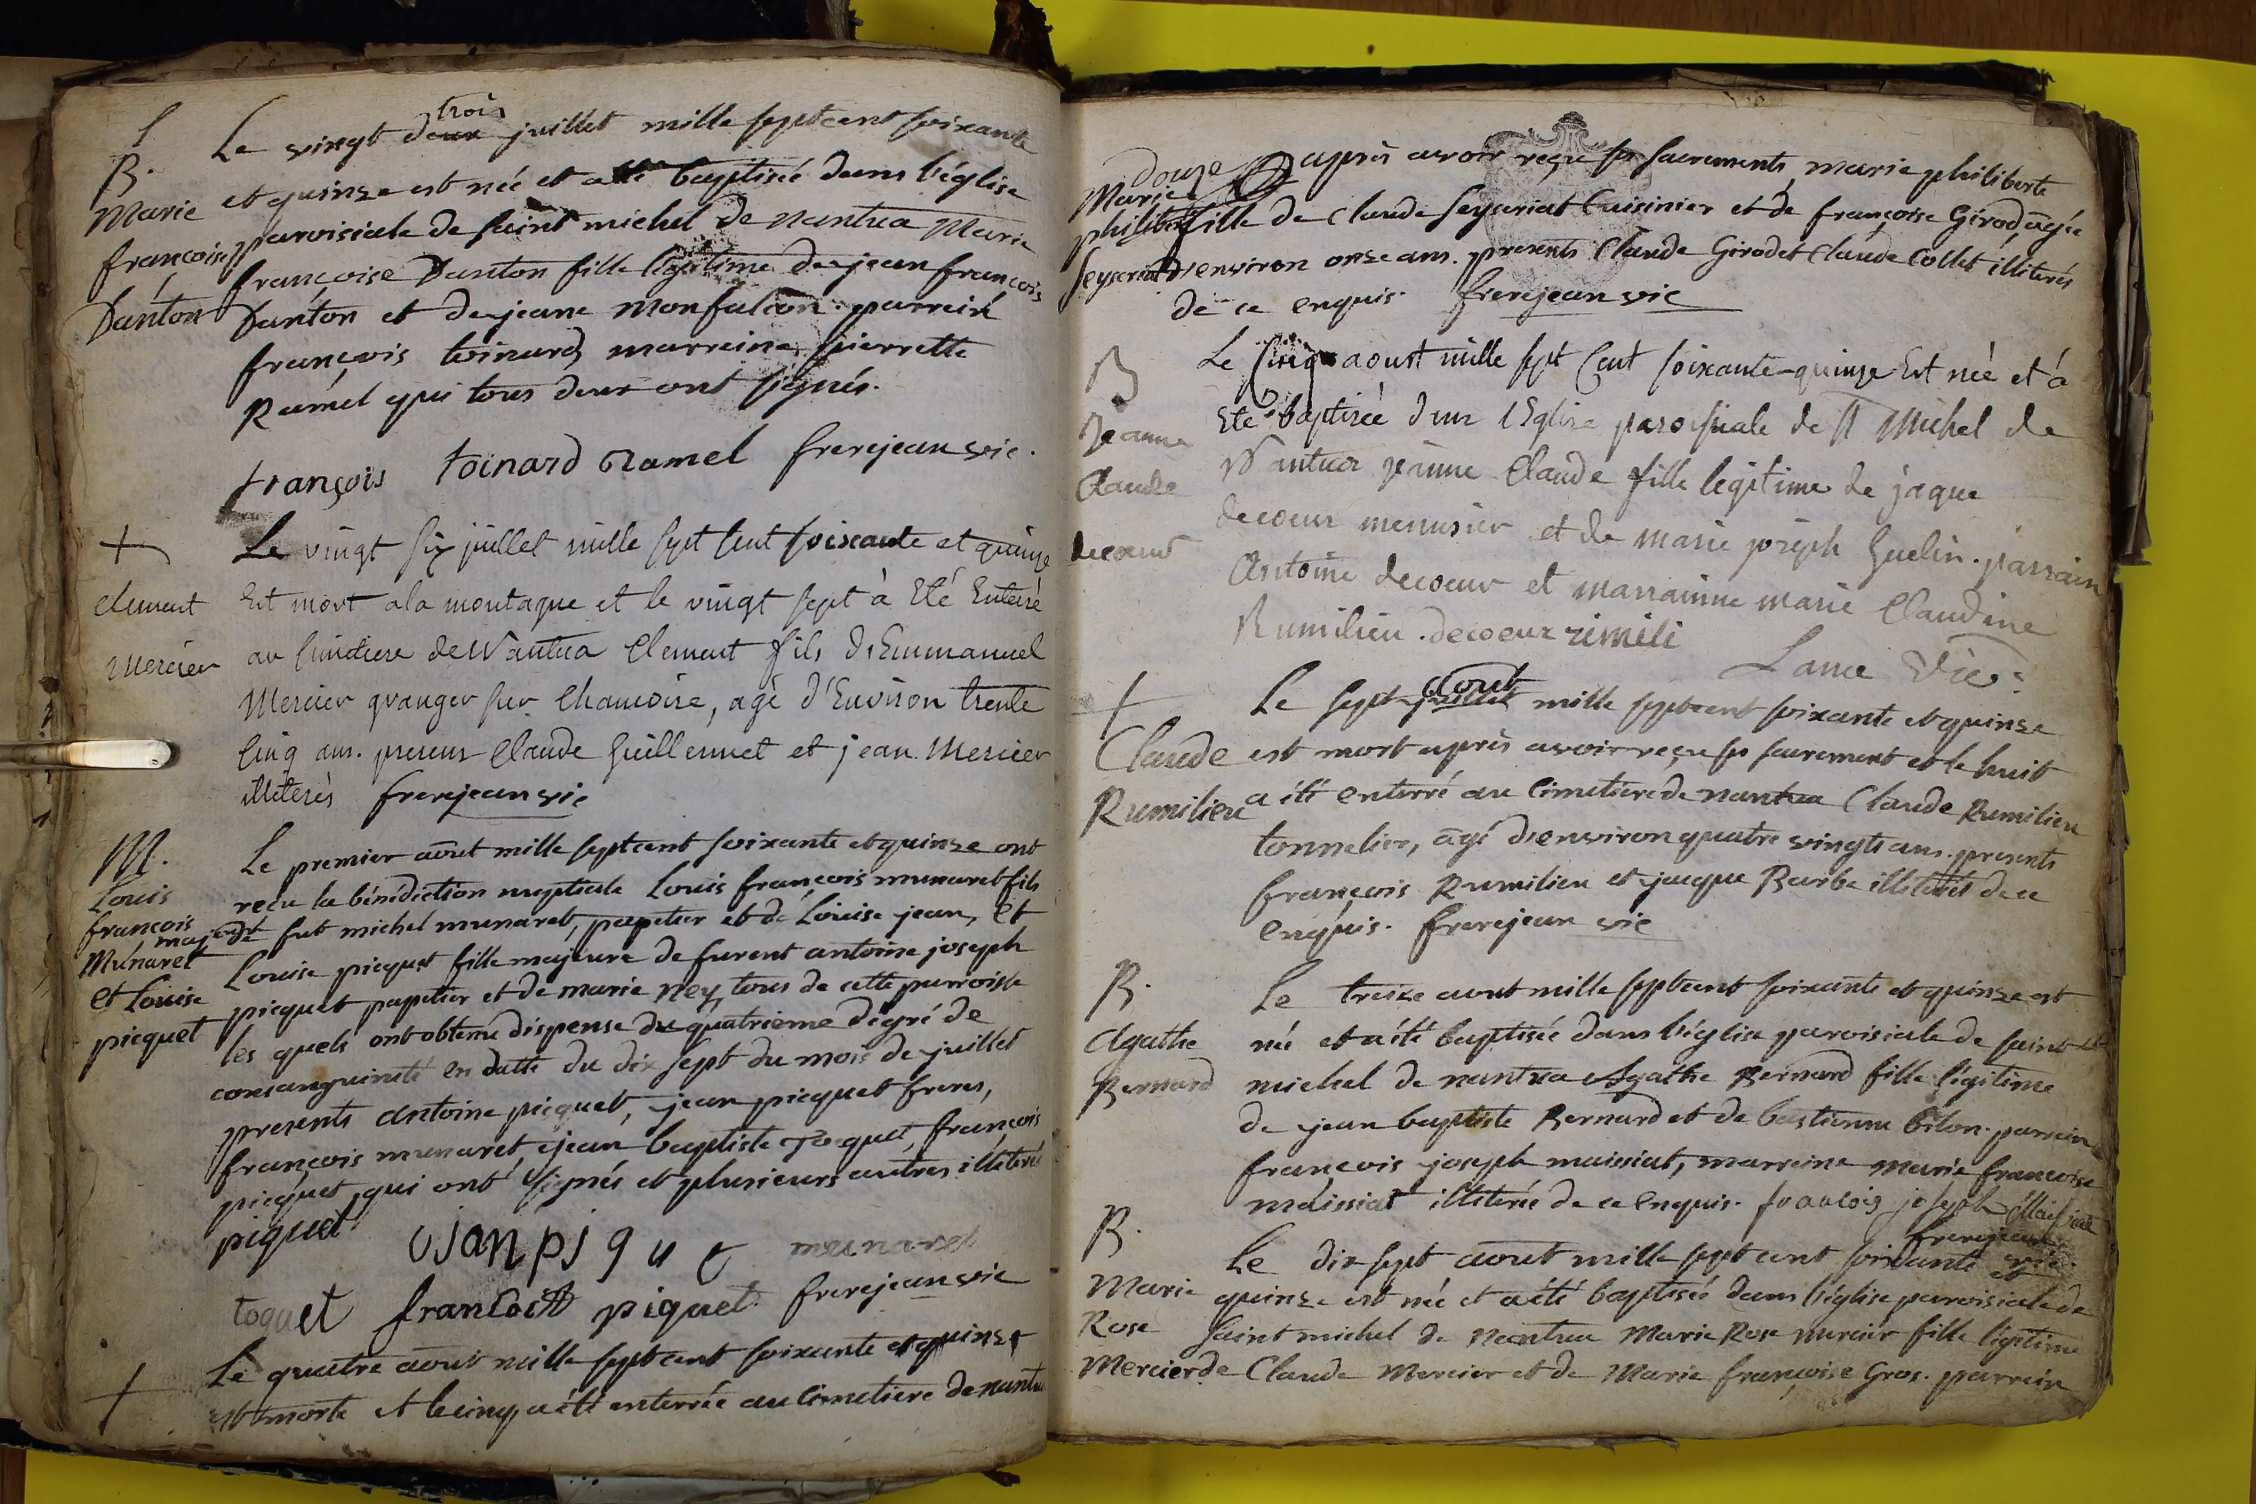 B.
Marie
françoise
Danton
Le vingt deux trois juillet mille sept cent soixante
et quinze est née et a été baptisée dans l'église
paroisiale de saint michel de nantua Marie
françoise Danton fille légitime de jean françois
Danton et de jeane monfalcon. parrein
françois toinard, marreine pierrette
Ramel qui tous deux ont signés.
françois toinard Ramel frerejean vic.
+
Clement
Mercier
Le vingt six juillet mille sept cent soixante et quinze
Est mort a la montagne et le vingt sept à Eté Enterré
au cimetiere de Nantua Clement fils d'Emmanuel
Mercier granger sur Chamoise, agé d'Environ trente
Cinq ans. presens Claude Guillermet et jean Mercier
illiterés frerejean vic
M.
Louis
françois
Munaret
et Louise
picquet
Le premier aout mille sept cent soixante et quinze ont
reçu la bénédiction nuptiale Louis françois munaret fils
majeur de fut michel munaret, papetier et de Louise jean, et
Louise picquet fille majeure de furent antoine joseph
picquet papetier et de marie Ney, tous de cette parroisse
les quels ont obtenu dispense du quatrieme dégré de
consanguinité en datte du dix sept du mois de juillet
presents antoine picquet, jean picquet freres,
françois munaret, jean baptiste Toquet, françois
picquet, qui ont signés et plusieurs autres illiterés
piquet jan pique munaret
toquet francois piquet frerejean vic
+
Le quatre aout mille sept cent soixante et quinze
est morte et le cinq a été enterrée au cimetiere de nantua
Marie
philiberte
Seyseriat
après avoir reçu ses sacrements, marie philiberte
fille de Claude Seyseriat Cuisinier et de françoise Girod, agée
d'environ onze douze ans. presents Claude Girod et Claude Collet illiterés
de ce enquis. frerejean vic
B
Jeanne
Claude
decoeur
Le Cinq aoust mille sept Cent soixante-quinze Est née et à
Eté baptisée dans l'Eglise paroissiale de St Michel de
Nantua jeanne Claude fille legitime de jaque
decoeur menusier et de marie joseph Guelin. parrain
Antoine decoeur et marrainne marie Claudine
Rumilieu. decoeur rimili
Lance Vic.
+
Claude
Rumilieu
Le sept juillet aout mille sept cent soixante et quinze
est mort après avoir reçu ses sacrement et le huit
a été enterré au Cimetiere de nantua Claude Rumilieu
tonnelier, agé d'environ quatre vingts ans. presents
françois Rumilieu et jacque Barbe illiterés de ce
enquis. frerejean vic
B.
Agathe
Bernard
Le treize aout mille sept cent soixante et quinze est
née et a été baptisée dans l'église paroisiale de saint
michel de nantua Agathe Bernard fille légitime
de jean baptiste Bernard et de bastienne bilon. parrein
françois joseph maissiat, marreine marie françoise
maissiat illiterée de ce enquis. francois joseph Maissiat
frerejean vic.
B.
Marie
Rose
Mercier
Le dix sept aout mille sept cent soixante et
quinze est née et a été baptisée dans l'église paroisiale de
saint michel de Nantua Marie Rose mercier fille légitime
de Claude Mercier et de Marie françoise Gros. parrein